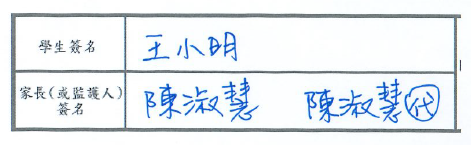 學生簽名 王小明
家長(或監護人)簽名 陳淑慧 陳淑慧 代